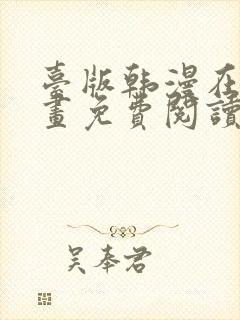 臺版韩漫在
畫免費閱讀
吴奉君